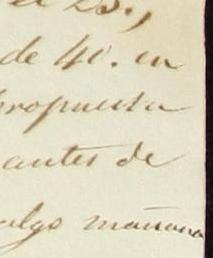 el 25.,
de 40. en
propuesta
antes de
algo mañana